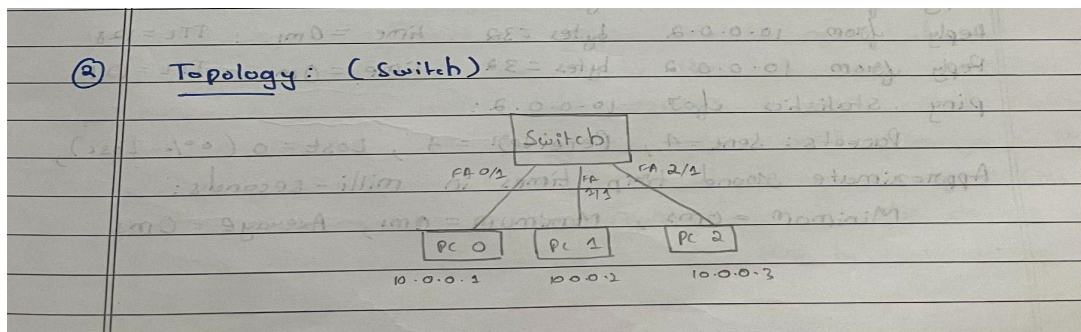 ② Topology: (Switch).
Switch
FA 0/1 FA FA 2/1
PC 0 PC 1 PC 2
10.0.0.1 10.0.0.2 10.0.0.3